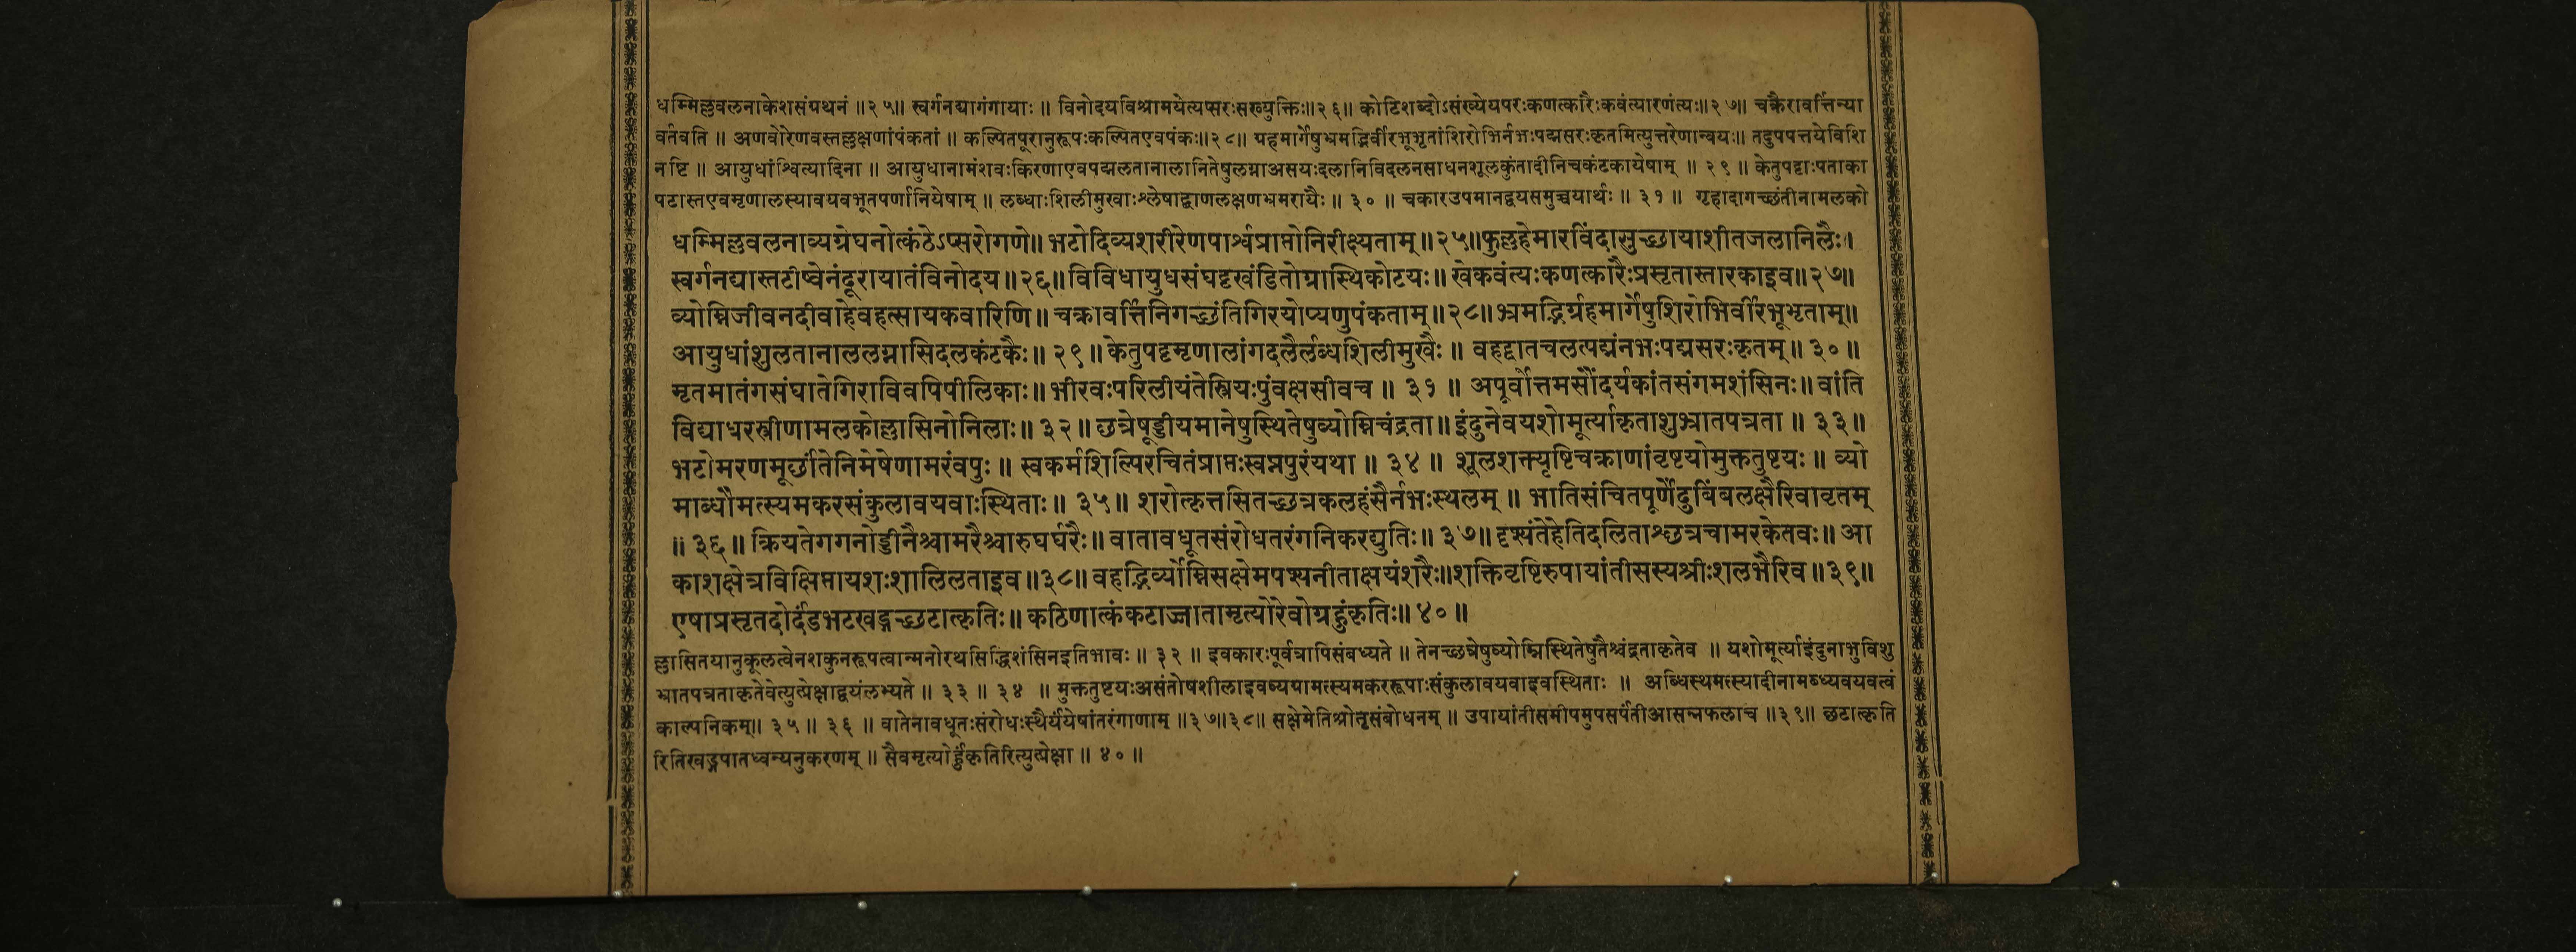 धम्मिल्लवलनाकेशसंग्रथनं ॥२५॥ स्वर्गनद्यागंगायाः ॥ विनोदयविश्रामयेत्यप्सरःसख्युक्तिः॥२६॥ कोटिशब्दोऽसंख्येयपरःकणत्कारैःकवंत्यारणंत्यः॥२७॥ चक्रैरावर्त्तिन्या
वर्तवति ॥ अणवोरेणवस्तल्लक्षणांपंकतां ॥ कल्पितपूरानुरूपःकल्पितएवपंकः॥२८॥ ग्रहमार्गेषुभ्रमद्भिर्वीरभूभृतांशिरोभिर्नभःपद्मसरःकृतमित्युत्तरेणान्वयः॥ तदुपपत्तयेविशि
नष्टि ॥ आयुधांश्वित्यादिना ॥ आयुधानामंशवःकिरणाएवपद्मलतानालानितेषुलग्नाअसयःदलानिविदलनसाधनशूलकुंतादीनिचकंटकायेषाम् ॥ २९ ॥ केतुपट्टाःपताका
पटास्तएवमृणालस्यावयवभूतपर्णानियेषाम् ॥ लब्धाःशिलीमुखाःश्लेषाद्बाणलक्षणभ्रमरायैः ॥ ३० ॥ चकारउपमानद्वयसमुच्चयार्थः ॥ ३१ ॥ गृहादागच्छंतीनामलको
धम्मिल्लवलनाव्यग्रेघनोत्कंठेऽप्सरोगणे॥ भटोदिव्यशरीरेणपार्श्वप्राप्तोनिरीक्ष्यताम्॥२५॥फुल्लहेमारविंदासुच्छायाशीतजलानिलैः।
स्वर्गनद्यास्तटीष्वेनंदूरायातंविनोदय॥२६॥विविधायुधसंघट्टखंडितोग्रास्थिकोटयः॥ खेकवंत्यःकणत्कारैःप्रसृतास्तारकाइव॥२७॥
व्योम्निजीवनदीवाहेवहत्सायकवारिणि॥ चक्रावर्त्तिनिगच्छंतिगिरयोप्यणुपंकताम्॥२८॥भ्रमद्भिर्ग्रहमार्गेषुशिरोभिर्वीरभूभृताम्॥
आयुधांशुलतानाललग्नासिदलकंटकैः॥ २९॥ केतुपट्टमृणालांगदलैर्लब्धशिलीमुखैः ॥ वहद्वातचलत्पद्मंनभःपद्मसरःकृतम्॥ ३०॥
मृतमातंगसंघातेगिराविवपिपीलिकाः॥ भीरवःपरिलीयंतेस्त्रियःपुंवक्षसीवच ॥ ३१ ॥ अपूर्वोत्तमसौंदर्यकांतसंगमशंसिनः॥ वांति
विद्याधरस्त्रीणामलकोल्लासिनोनिलाः॥ ३२॥ छत्रेषूड्डीयमानेषुस्थितेषुव्योम्निचंद्रता॥ इंदुनेवयशोमूर्त्याकृताशुभ्रातपत्रता ॥ ३३॥
भटोमरणमूर्छांतेनिमेषेणामरंवपुः ॥ स्वकर्मशिल्पिरचितंप्राप्तःस्वप्नपुरंयथा ॥ ३४ ॥ शूलशक्त्यृष्टिचक्राणांवृष्टयोमुक्ततुष्टयः ॥ व्यो
माब्धौमत्स्यमकरसंकुलावयवाःस्थिताः॥ ३५॥ शरोत्कृत्तसितच्छत्रकलहंसैर्नभःस्थलम् ॥ भातिसंचितपूर्णेंदुबिंबलक्षैरिवावृतम्
॥ ३६॥ क्रियतेगगनोड्डीनैश्चामरैश्चारुघर्घरैः॥ वातावधूतसंरोधतरंगनिकरद्युतिः॥ ३७॥ दृश्यंतेहेतिदलिताश्छत्रचामरकेतवः॥ आ
काशक्षेत्रविक्षिप्तायशःशालिलताइव॥३८॥ वहद्भिर्व्योम्निसक्षेमपश्यनीताक्षयंशरैः॥शक्तिवृष्टिरुपायांतीसस्यश्रीःशलभैरिव॥३९॥
एषाप्रसृतदोर्दंडभटखड्गच्छटात्कृतिः॥ कठिणात्कंकटाज्जातामृत्योरेवोग्रहुंकृतिः॥ ४०॥
ल्लासितयानुकूलत्वेनशकुनरूपत्वान्मनोरथसिद्धिशंसिनइतिभावः ॥ ३२ ॥ इवकारःपूर्वत्रापिसंबध्यते ॥ तेनच्छत्रेषुव्योम्निस्थितेषुतैश्चंद्रताकृतेव ॥ यशोमूर्त्याइंदुनाभुविशु
भ्रातपत्रताकृतेवेत्युत्प्रेक्षाद्वयंलभ्यते ॥ ३३ ॥ ३४ ॥ मुक्ततुष्टयःअसंतोषशीलाइवव्यग्रामत्स्यमकररूपाःसंकुलावयवाइवस्थिताः ॥ अब्धिस्थमत्स्यादीनामब्ध्यवयवत्वं
काल्पनिकम्॥ ३५॥ ३६ ॥ वातेनावधूतःसंरोधःस्थैर्यंयेषांतरंगाणाम् ॥३७॥३८॥ सक्षेमेतिश्रोतृसंबोधनम् ॥ उपायांतीसमीपमुपसर्पंतीआसन्नफलाच ॥३९॥ छटात्कृति
रितिखड्गपातध्वन्यनुकरणम् ॥ सैवमृत्योर्हुंकृतिरित्युत्प्रेक्षा ॥ ४० ॥